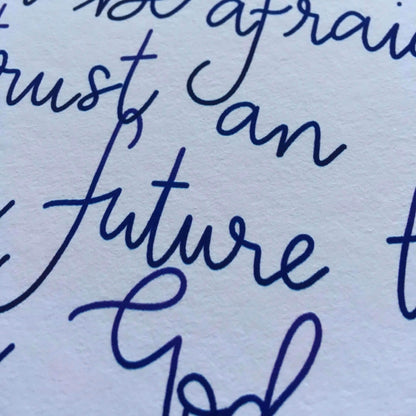 be afraid
trust an
future t
God